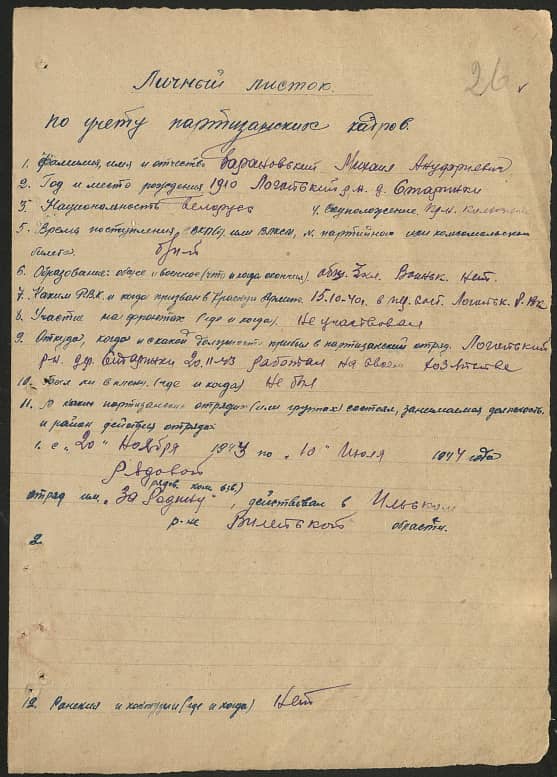 26
Личный листок
по учету партизанских кадров.
1. Фамилия, имя и отчество Барановский Михаил Ануфриевич
2. Год и место рождения 1910 Логойтький р.н. д. Старинки
3. Национальность белорусс 4. Соцположение кр-н.
5. Время поступления в ВКП(б) или ВЛКСМ, № партийного или комсомольского
билета. б/п-й
6. Образование: общее и военное (что и когда окончил) общ. 3 кл. Военьк. Нет.
7. Каким Р.В.К. и когда призван в Красную Армию. 15.10.40г. в Логойтьк. Р.В.К
8. Участие на фронтах (где и когда). Не участвовал
9. Откуда, когда и с какой должности прибыл в партизанский отряд. Логойтький
р-н д. Старинки 20.11.43 работал на своем хозяйстве
10. Был ли в плену. (где и когда) Не был
11. В каких партизанских отрядах (или группах) состоял, занимаемая должность.
и район действия отряда:
1. с "20" Ноября 1943 по "10" Июля 1944 года
Рядовой
(рядов. ком. взв.)
отряд им. "За Родину", действовал в Ильском
р-не Вилейской области.
2
12. Ранения и контузии (где и когда) Нет